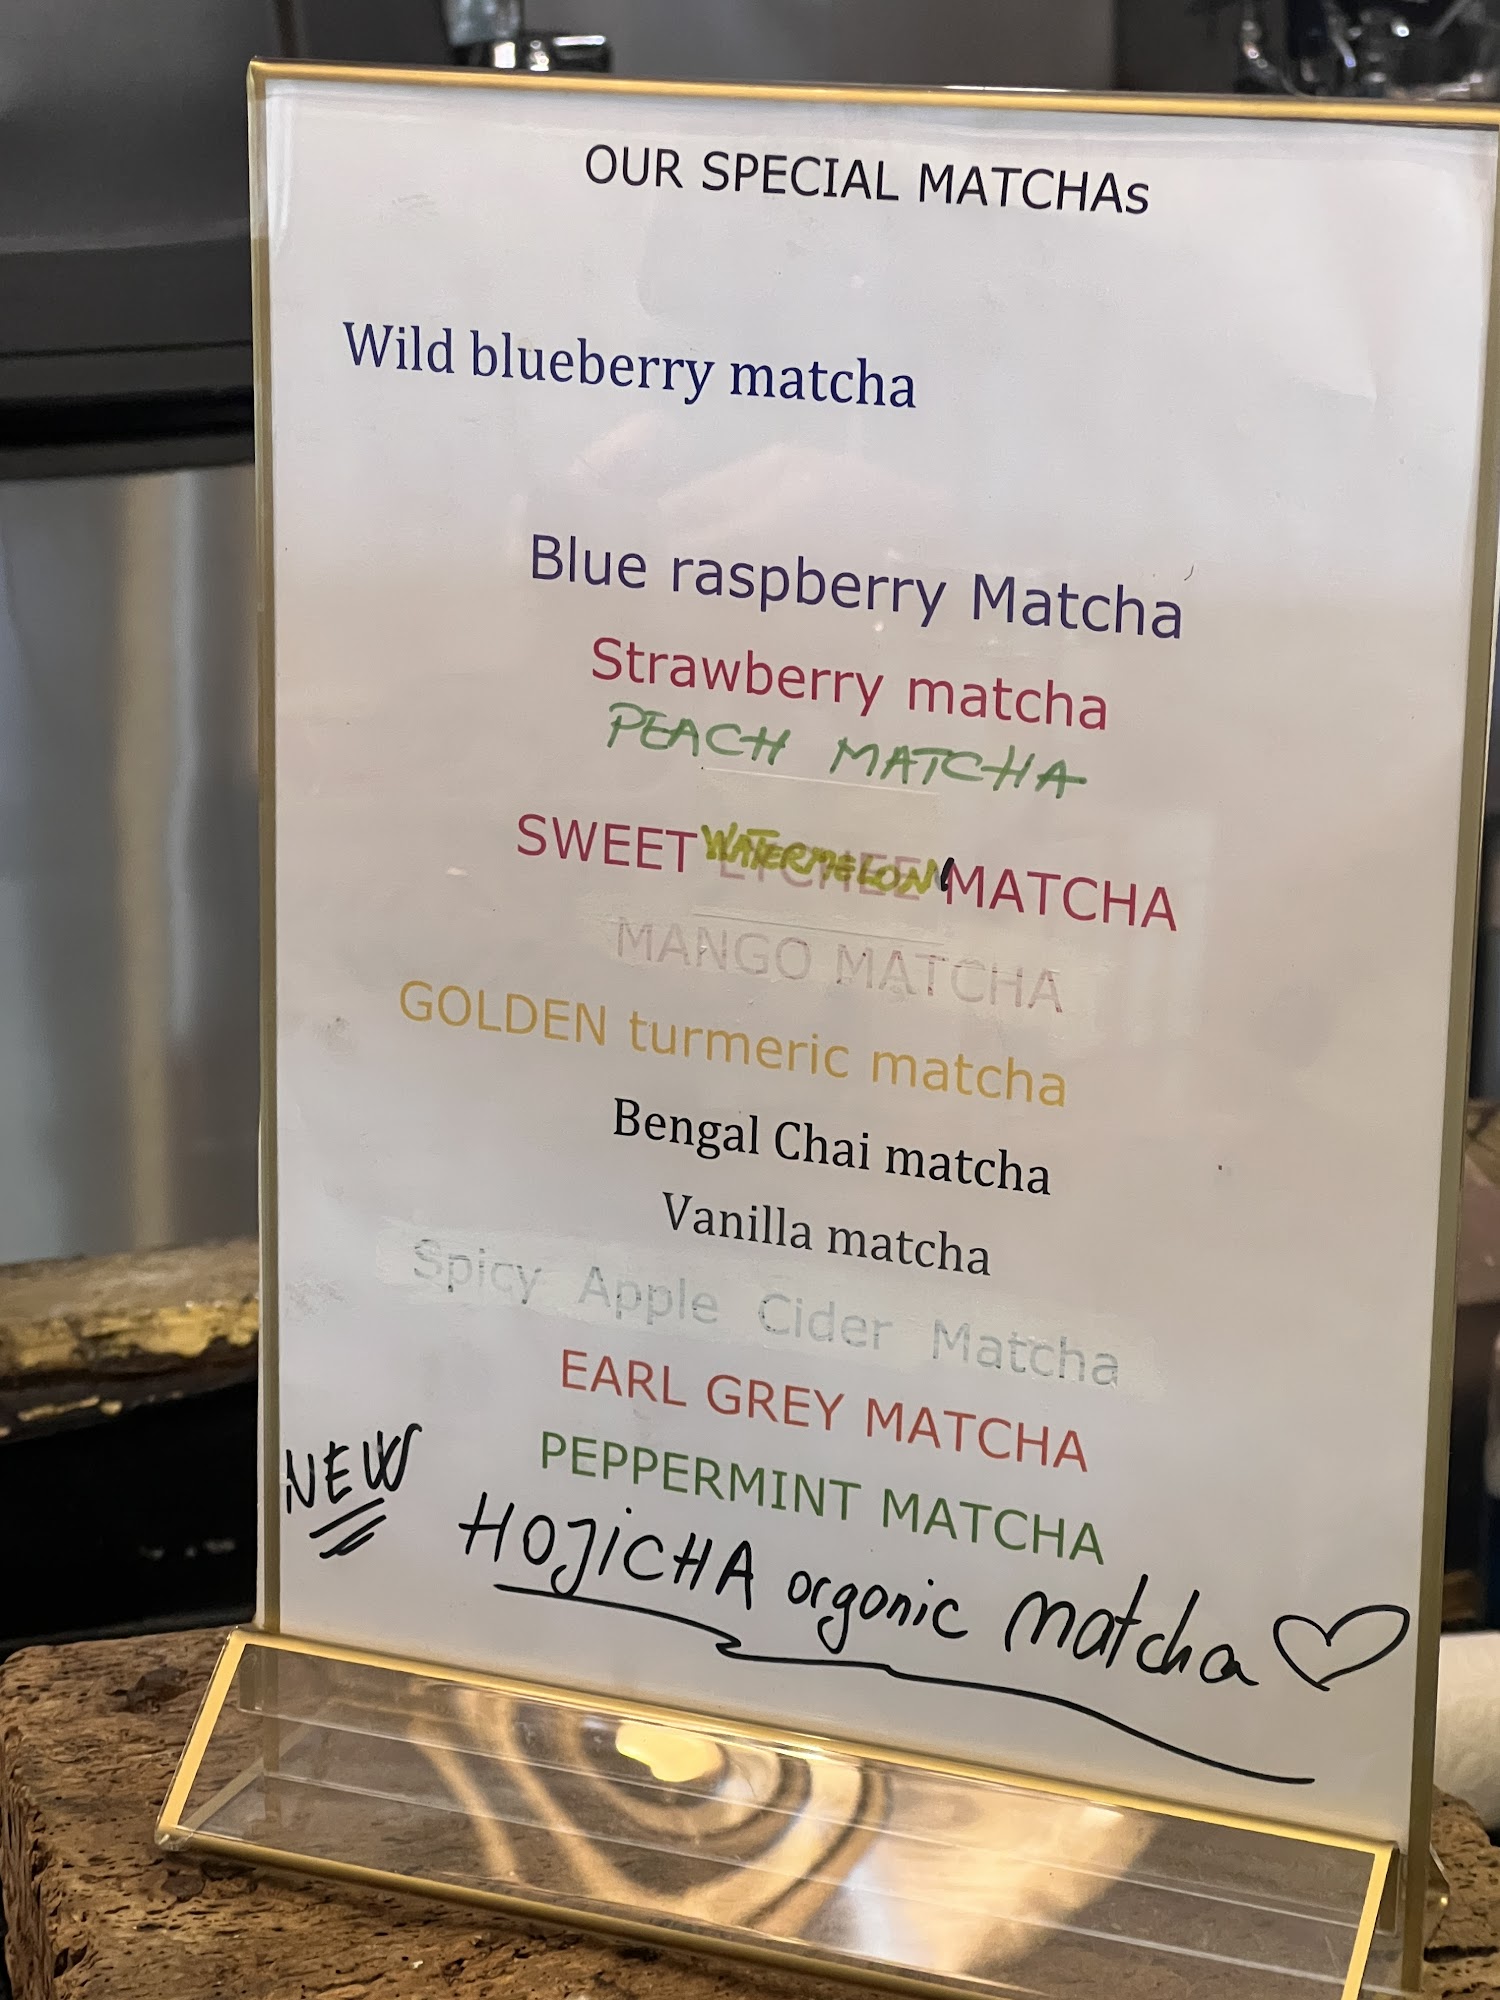 OUR SPECIAL MATCHAs
Wild blueberry matcha
Blue raspberry Matcha
Strawberry matcha
PEACH MATCHA
SWEET WATERMELON MATCHA
MANGO MATCHA
GOLDEN turmeric matcha
Bengal Chai matcha
Vanilla matcha
Spicy Apple Cider Matcha
EARL GREY MATCHA
PEPPERMINT MATCHA
NEW
HOJiCHA orgonic Matcha